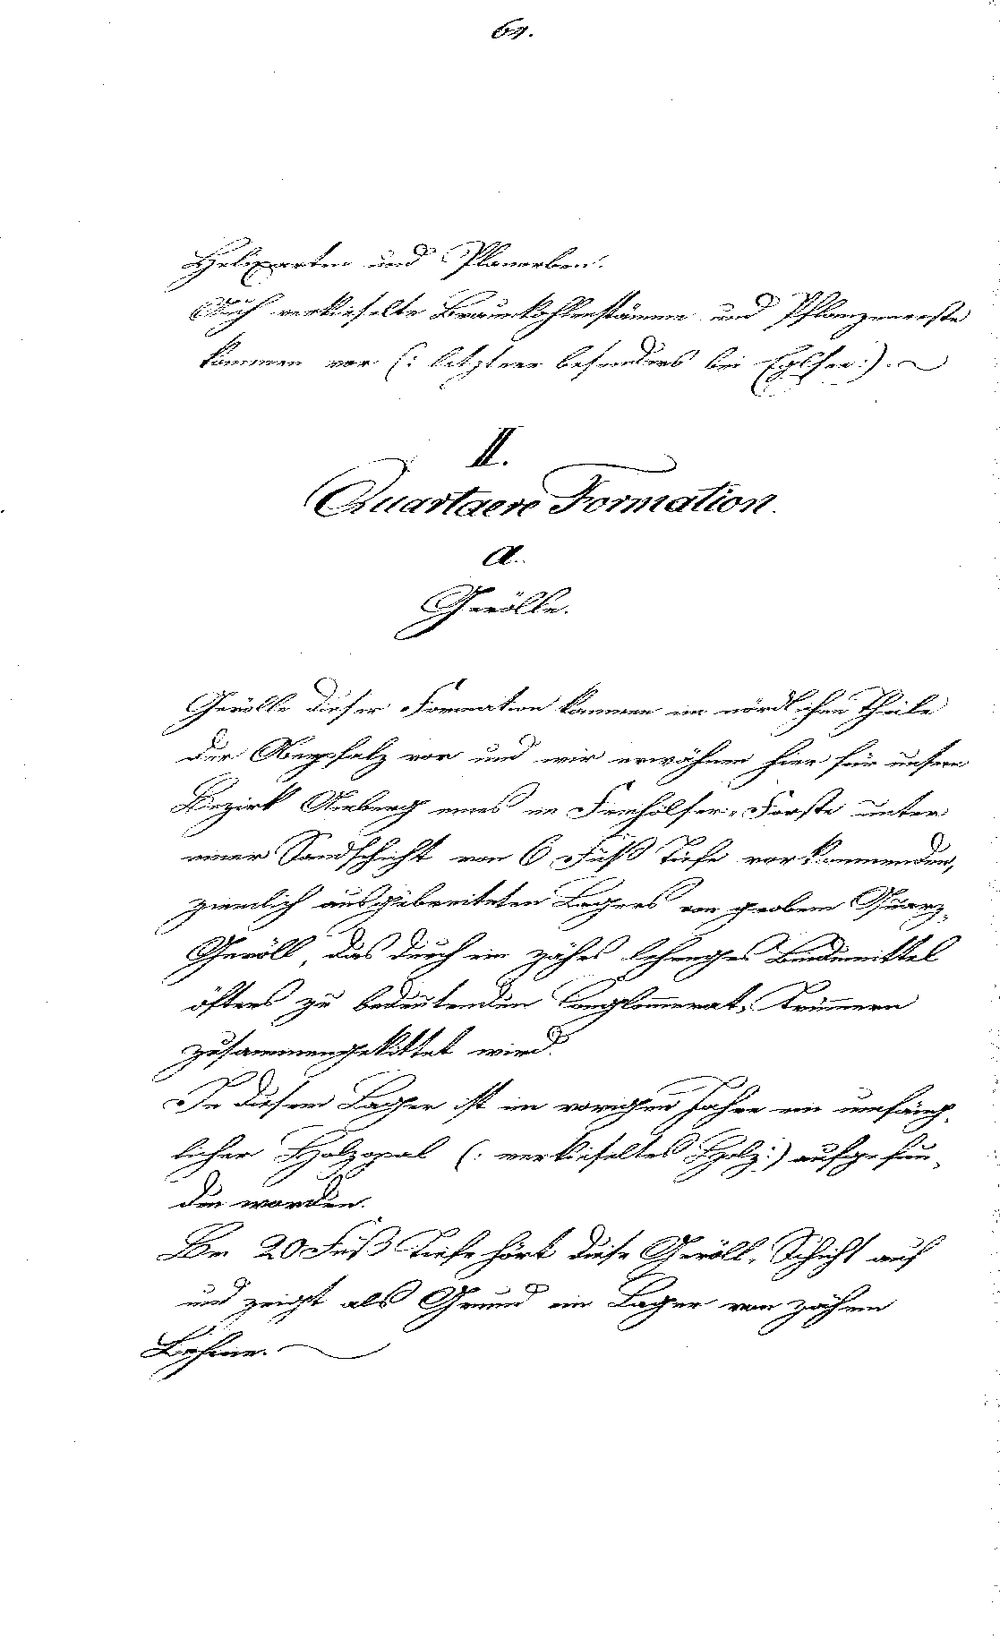 64.
Helixarten und Planorben.
Auch verkieselte Braunkohlenstämme und Pflanzenreste
kommen vor (: letztere besonders bei :).
II.
Quartaere Formation.
a.
Gerölle.
Gerölle dieser Formation kommen im nördlichen Theile
der Oberpfalz vor und wir erwähnen hier für unsern
Bezirk Amberg eines im Forste unter
einer Sandschicht von 6 Fuß Tiefe vorkommenden,
ziemlich ausgebreiteten Lagers von grobem Quarz-
Geröll, das durch ein zähes lehmiges Bindemittel
öfters zu bedeutenden Conglomerat-Trümmern
zusammengekittet wird.
In diesem Lager ist im vorigen Jahre ein umfäng-
licher Holzopal (: verkieseltes Holz :) aufgefun-
den worden.
Bei 20 Fuß Tiefe hört diese Geröll-Schicht auf
und zeigt als Grund ein Lager von zähem
Lehme.